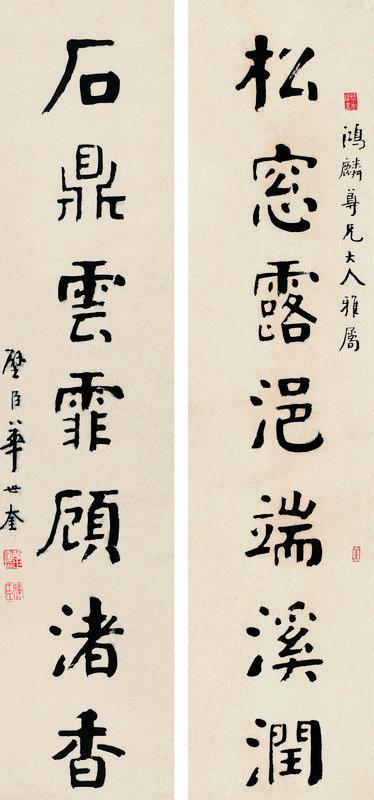 鴻麟尊兄大人雅屬
松窓露浥端溪潤
石鼎雲霏顧渚香
璧臣華世奎